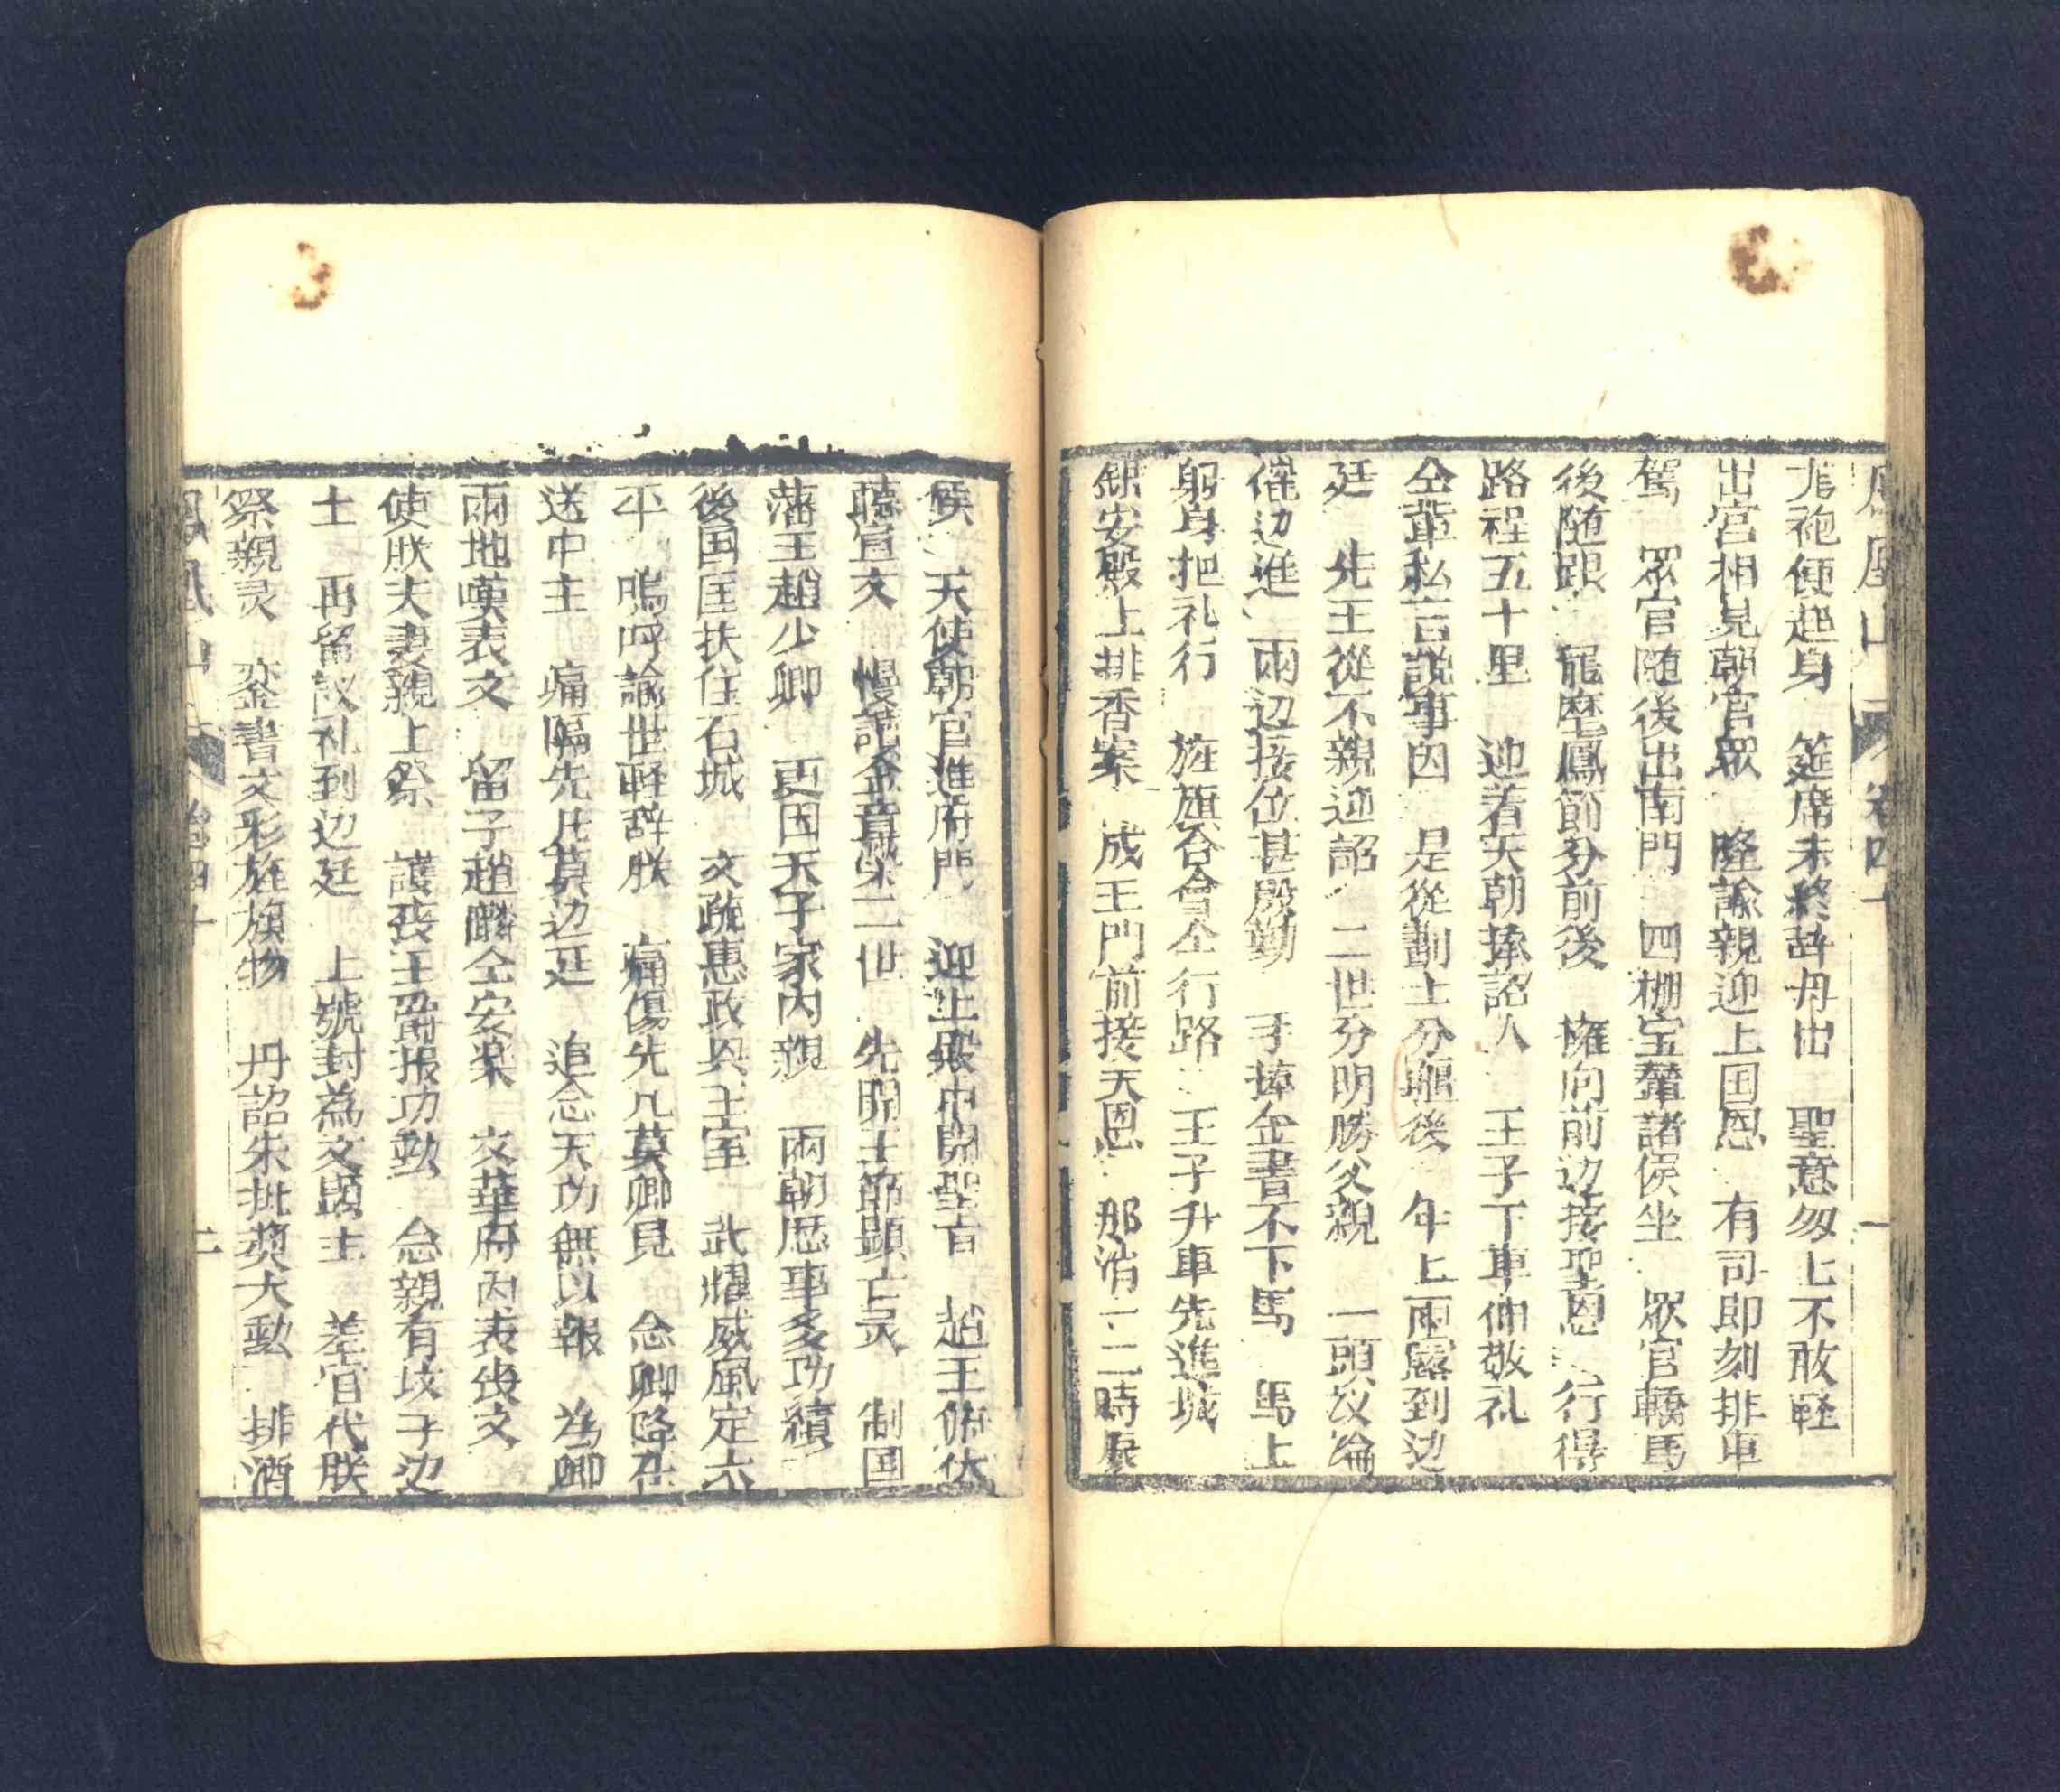 卷四十 一
袍便起身 筵席未終辞母出 聖意匆匕不敢軽
出宮相見朝官眾 隆諭親迎上囯恩 有司即刻排車
駕 眾官随後出南門 四棚宝輦諸侯坐 眾官轎馬
後随跟 羆麾鳳節分前後 擁向前边接聖恩 行得
路程五十里 迎着天朝捧詔人 王子下車伸敬礼
仝輩私言說事因 是從劃土分疆後 年上雨露到边
廷 先王從不親迎詔 二世分明勝父親 一頭攷論
催边進 兩边接位甚殷勤 手捧金書不下馬 馬上
躬身把礼行 旌旗合會仝行路 王子升車先進城
銀安殿上排香案 成王門前接天恩 那消一二時辰
候 天使朝官進府門 迎上殿中開聖旨 趙王俯伏
聽宣文 慢說金章榮二世 先開玉節顕亡灵 制囯
藩王趙少卿 更因天子家內親 兩朝歷事多功績
後囯匡扶住石城 文疏惠政興王室 武燿威風定六
平 嗚呼諭世軽辞朕 痛傷先凡莫卿見 念卿降在
送中主 痛隔先凡莫边廷 追念天功無以報 為卿
兩地嘆表文 留子趙麟仝安楽 文華府內表喪文
使朕夫妻親上祭 護喪王爵报功勳 念親有坟于边
土 再留設礼到边廷 上號封為文顕主 差官代朕
祭親灵 金書文彩旌旗物 丹詔朱批奬大勳 排酒
鳳凰山 卷四十 二